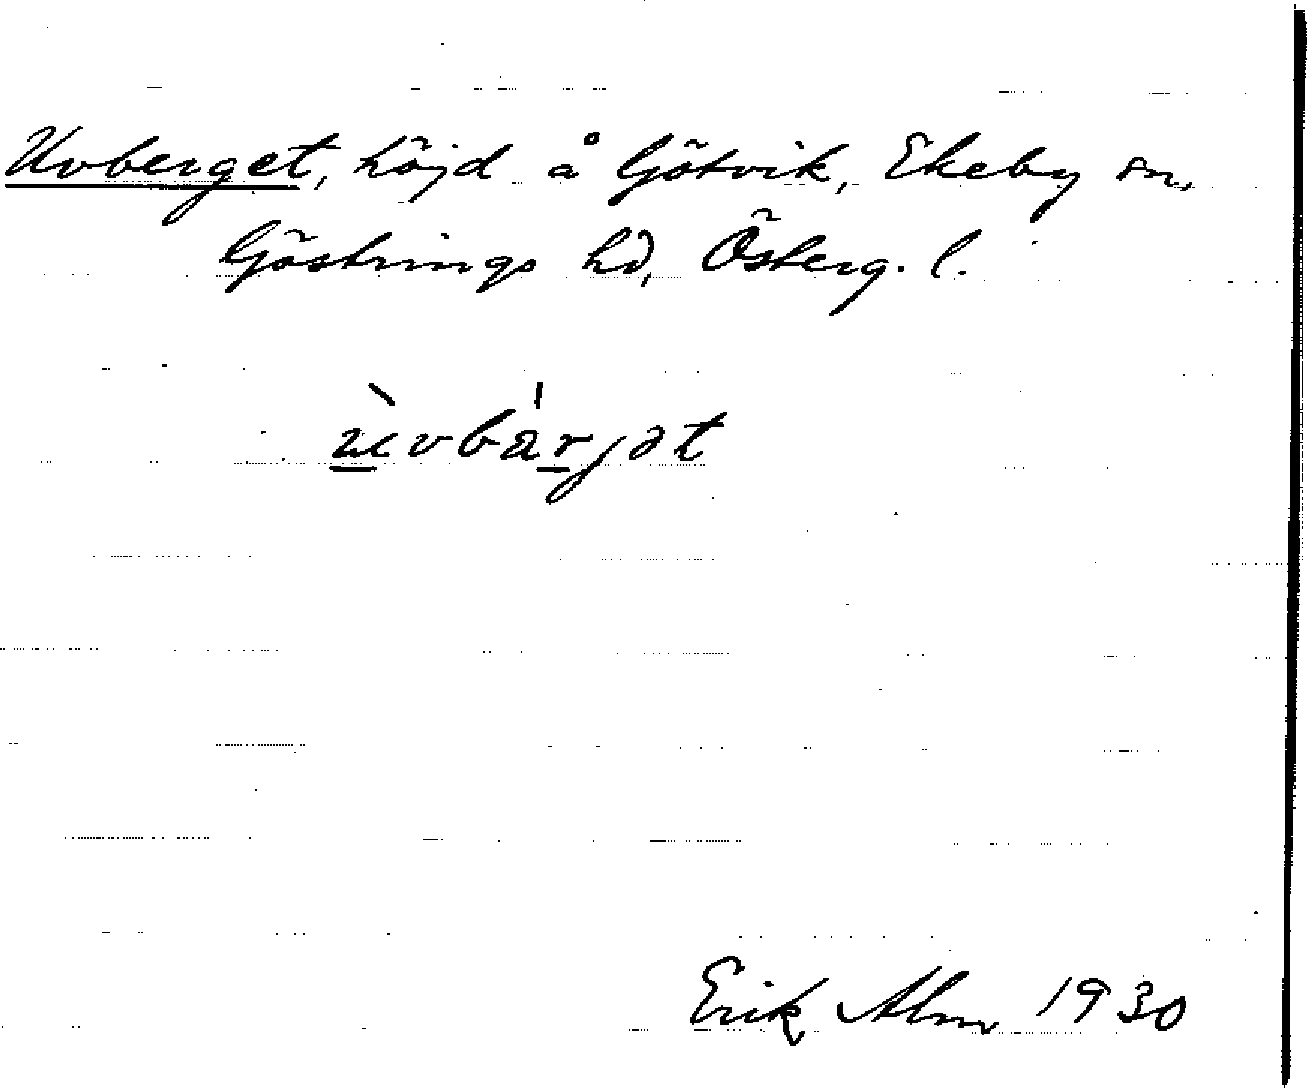 Uvberget, höjd å Götvik, Ekeby sn,
Göstrings hd, Österg. l.
ùvbárjət
Erik Alm 1930